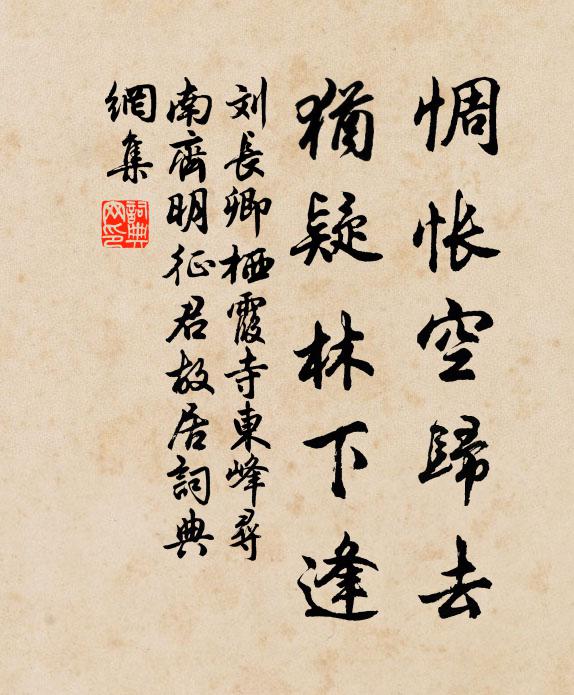 惆怅空歸去
猶疑林下逢
刘長卿栖霞寺東峰尋
南齊明征君故居詞典
網集
詞典網印